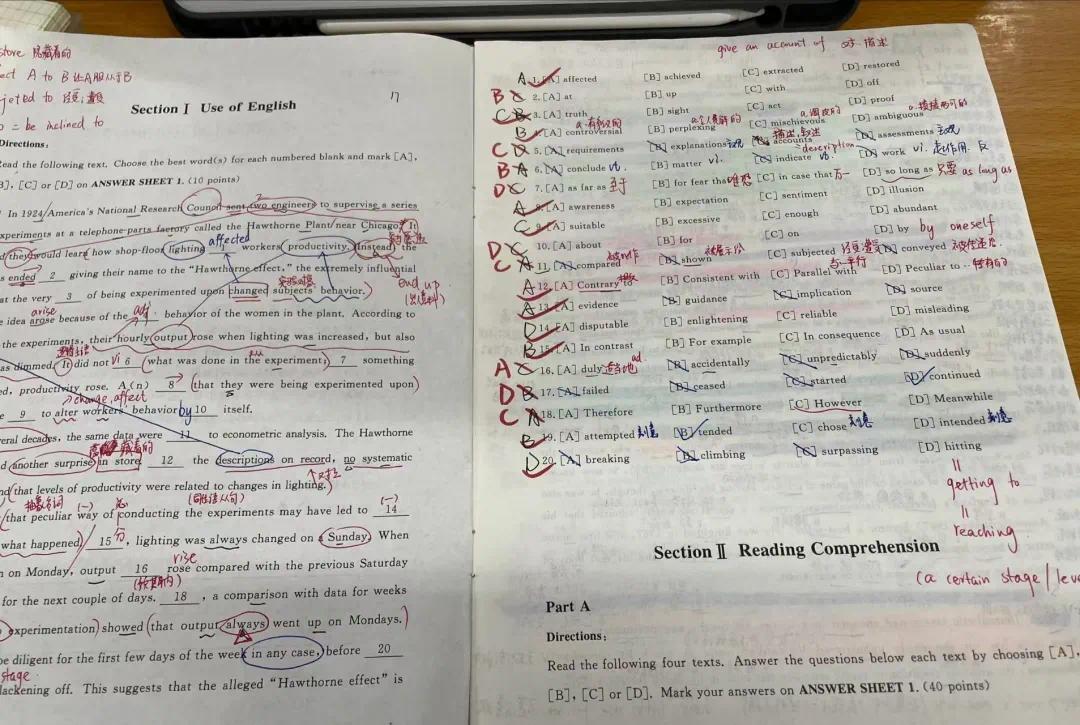 store 隐藏着的
ect A to B 让A服从于B
jeted to 经受,遭受
o = be inclined to
17
Section Ⅰ Use of English
Directions:
Read the following text. Choose the best word(s) for each numbered blank and mark [A],
B], [C] or [D] on ANSWER SHEET 1. (10 points)
In 1924 America's National Research Council sent two engineers to supervise a series
xperiments at a telephone-parts factory called the Hawthorne Plant near Chicago. It
they would learn how shop-floor lighting affected workers productivity. Instead, the
s ended 2 giving their name to the "Hawthorne effect," the extremely influential
end up
at the very 3 of being experimented upon changed subjects' behavior.
arise adj
e idea arose because of the behavior of the women in the plant. According to
the experiments, their hourly output rose when lighting was increased, but also
as dimmed. It did not vi 6 what was done in the experiment; 7 something
ed, productivity rose. A(n) 8 that they were being experimented upon
change, affect
e 9 to alter workers' behavior by 10 itself.
eral decades, the same data were 11 to econometric analysis. The Hawthorne
藏着的
d another surprise in store 12 the descriptions on record, no systematic
nd that levels of productivity were related to changes in lighting.
抽象名词 (一) (同位语从句) (一)
that peculiar way of conducting the experiments may have led to 14
what happened. 15 , lighting was always changed on Sunday. When
rise
n on Monday, output 16 rose compared with the previous Saturday
for the next couple of days. 18 , a comparison with data for weeks
experimentation) showed that output always went up on Mondays.
be diligent for the first few days of the week in any case, before 20
stage
lackening off. This suggests that the alleged "Hawthorne effect" is
give an account of 对…描述
A 1. [A] affected [B] achieved [C] extracted [D] restored
B 2. [A] at [B] up [C] with [D] off
C 3. [A] truth [B] sight [C] act [D] proof
a.有争议的 a.令人费解的 a.调皮的 a.模棱两可的
B 4. [A] controversial [B] perplexing [C] mischievous [D] ambiguous
描述,叙述
C 5. [A] requirements [B] explanations 主观 [C] accounts [D] assessments 主观
description
B A 6. [A] conclude vt. [B] matter vi. [C] indicate vt. [D] work vi. 起作用
D C 7. [A] as far as 至于 [B] for fear that 唯恐 [C] in case that 万一 [D] so long as 只要 as long as
A 8. [A] awareness [B] expectation [C] sentiment [D] illusion
C 9. [A] suitable [B] excessive [C] enough [D] abundant
D 10. [A] about [B] for [C] on [D] by by oneself
C A 11. [A] compared [B] shown 被展示给 [C] subjected 经受,遭受 [D] conveyed
与…平行 特有的
A 12. [A] Contrary to [B] Consistent with [C] Parallel with [D] Peculiar to
A 13. [A] evidence [B] guidance [C] implication [D] source
D 14. [A] disputable [B] enlightening [C] reliable [D] misleading
B 15. [A] In contrast [B] For example [C] In consequence [D] As usual
A 16. [A] duly 适当地 ad. [B] accidentally [C] unpredictably [D] suddenly
D B 17. [A] failed [B] ceased [C] started [D] continued
C A 18. [A] Therefore [B] Furthermore [C] However [D] Meanwhile
B 19. [A] attempted [B] tended [C] chose [D] intended
D 20. [A] breaking [B] climbing [C] surpassing [D] hitting
||
getting to
||
reaching
(a certain stage / leve
Section Ⅱ Reading Comprehension
Part A
Directions:
Read the following four texts. Answer the questions below each text by choosing [A],
[B], [C] or [D]. Mark your answers on ANSWER SHEET 1. (40 points)